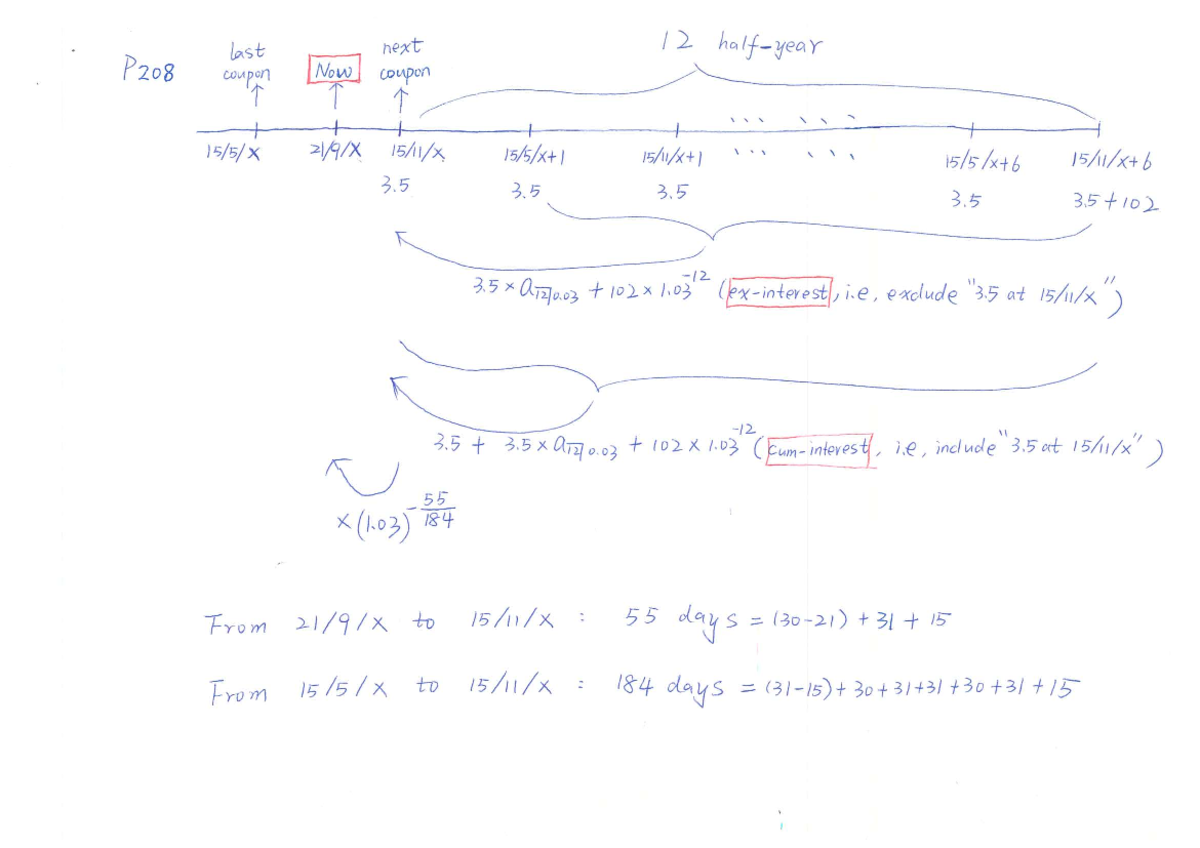 12 half-year
P208
last coupon
Now
next coupon
15/5/X 21/9/X 15/11/X 15/5/X+1 15/11/X+1 15/5/X+6 15/11/X+6
3.5 3.5 3.5 3.5 3.5+102
3.5 × a_{12|0.03} + 102 × 1.03^{-12} (ex-interest, i.e, exclude "3.5 at 15/11/X")
3.5 + 3.5 × a_{12|0.03} + 102 × 1.03^{-12} (cum-interest, i.e, include "3.5 at 15/11/X")
× (1.03)^{-55/184}
From 21/9/X to 15/11/X : 55 days = (30-21) + 31 + 15
From 15/5/X to 15/11/X : 184 days = (31-15) + 30 + 31 + 31 + 30 + 31 + 15